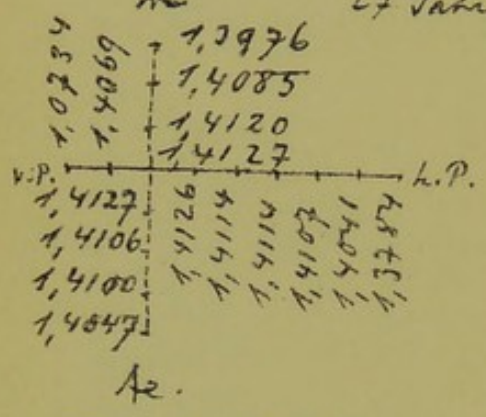 27 Jahr
1,0734
1,4069
1,3976
1,4085
1,4120
1,4127
v.P.
h.P.
1,4127
1,4106
1,4100
1,4047
1,4126
1,4114
1,4114
1,4107
1,4041
1,3784
Ae.